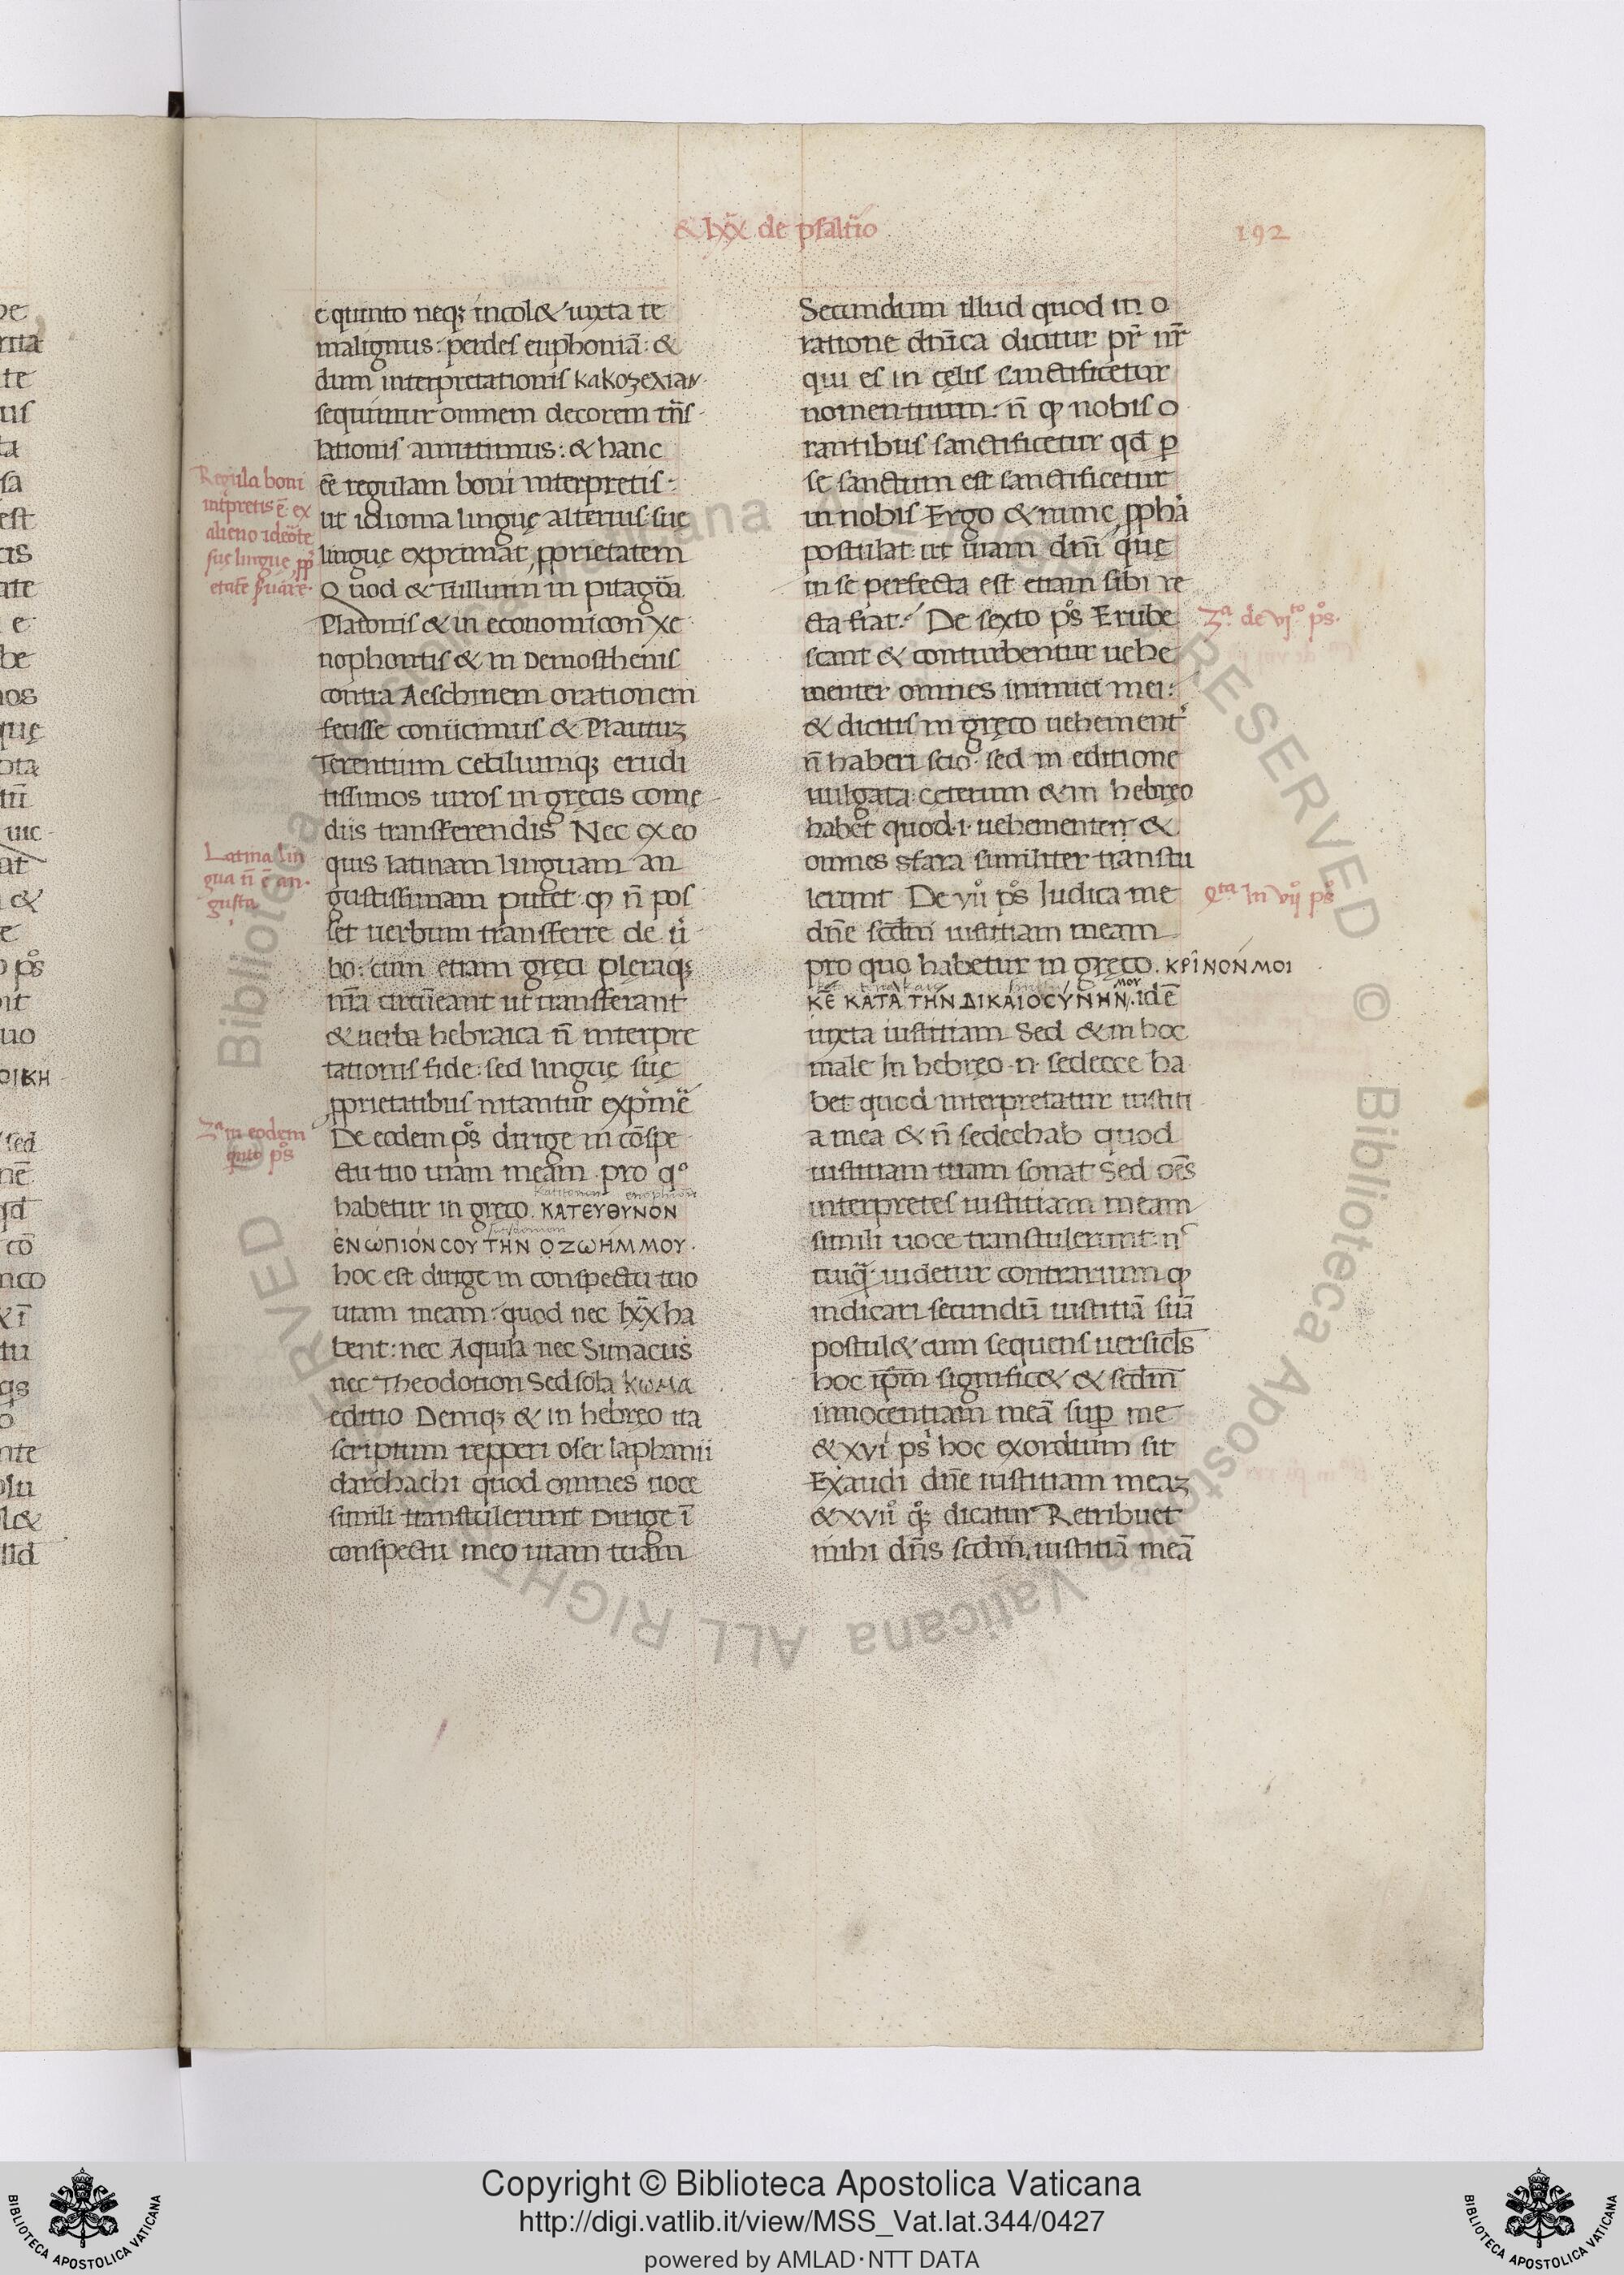 & lxx̄ de psalt̄io
192
e quinto neqꝫ incol& iuxta te
malignus: perdes euphoniā: &
dum interpretationis κακοζεχιαν
sequimur omnem decorem trn̄s
lationis amittimus: & hanc
eē regulam boni interpretis:
ut idioma linguę alterius suę
linguę exprimat ꝓprietatem
Quod & Tullium in pitagora
Platonis & in economicon Xe
nophontis & in Demosthenis
contra Aeschinem orationem
fecisse conuicimus & Plautuꝫ
Terentium Ceciliumqꝫ erudi
tissimos uiros in gręcis comę
diis transferendis Nec ex eo
quis latinam linguam an
gustissimam putet ꝙ n̄ pos
set uerbum transferre de ū
bo: cum etiam gręci pleraqꝫ
nr̄a circūeant ut transferant
& uerba hebraica n̄ interpre
tationis fide: sed linguę suę
ꝓprietatibus nitantur exp̄mē
De eodem pº̄s dirige in cōspe
ctu tuo uiam meam pro qº
habetur in gręco. ΚΑΤΕΥΘΥΝΟΝ
ΕΝΩΠΙΟΝ ϹΟΥ ΤΗΝ ΟΖΩΗΜ ΜΟΥ.
hoc est dirige in conspectu tuo
uiam meam: quod nec lxx̄ ha
bent: nec Aquila nec Simacus
nec Theodotion Sed sola κωμα
editio Deniqꝫ & in hebręo ita
scriptum repperi oser laphanii
darchachi quod omnes uoce
simili transtulerunt Dirige ī
conspectu meo uiam tuam
Regula boni
int̄pretis ē ex
alieno ideōte
suę linguę ꝓp̄
etatē ẜuare.
Latina lin
gua n̄ ē an-
gusta
3ª in eodem
quīto pº̄s
Secundum illud quod in o
ratione dn̄ica dicitur pr̄ nr̄
qui es in cęlis sanctificetur
nomen tuum: n̄ ꝙ nobis o
rantibus sanctificetur qd̄ ꝑ
se sanctum est sanctificetur
in nobis Ergo & nunc ꝓpha
postulat ut uiam dn̄i que
in se perfecta est etiam sibi re
cta fiat. De sexto pº̄s Erube
scant & conturbentur uehe
menter omnes inimici mei:
& dicitis in gręco uehement̄
n̄ haberi scio. sed in editione
uulgata cęterum & in hebręo
habet quod .i. uehementer &
omnes sfara similiter transtu
lerunt De viiº pº̄s Iudica me
dn̄e scd̄m iustitiam meam
pro quo habetur in gręco. ΚΡΙΝΟΝ ΜΟΙ
ΚΕ̄ ΚΑΤΑ ΤΗΝ ΔΙΚΑΙΟϹΥΝΗΝ ΜΟΥ. id ē
iuxta iustitiam Sed & in hoc
male In hebręo .n. sedecce ha
bet quod interpretatur iustiti
a mea & n̄ sedechab quod
iustitiam tuam sonat Sed oēs
interpretes iustitiam meam
simili uoce transtulerunt n̄
cuiq̄ uidetur contrarium ꝙ
indicari secundū iustitiā suā
postul& cum sequens uersicl̄s
hoc ip̄m signific& & scd̄m
innocentiam meā suꝑ me
& xvi pº̄s hoc exordium sit
Exaudi dn̄e iustitiam meaꝫ
& xviiº qºꝫ dicatur Retribuet
mihi dn̄s scd̄m iustitiā meā
3ª. de vjᵗº. pº̄s.
qᵗᵃ In vij pº̄s
Copyright © Biblioteca Apostolica Vaticana
http://digi.vatlib.it/view/MSS_Vat.lat.344/0427
powered by AMLAD·NTT DATA
BIBLIOTECA APOSTOLICA VATICANA
BIBLIOTECA APOSTOLICA VATICANA